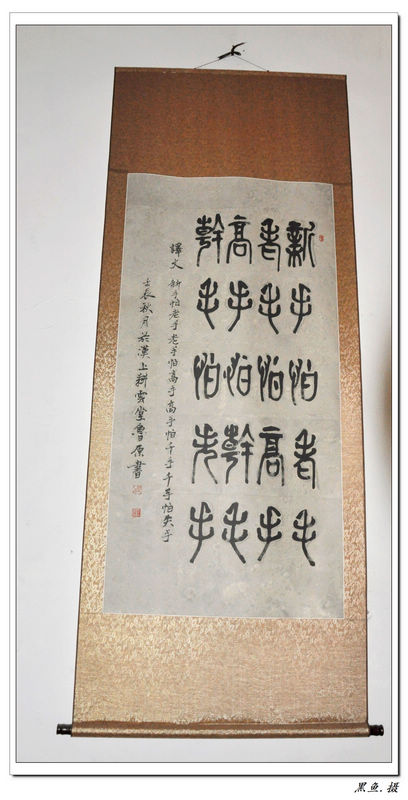 新手怕老手
老手怕高手
高手怕幹手
幹手怕失手
譯文 新手怕老手老手怕高手高手怕千手千手怕失手
壬辰秋月於漢上耕雲堂魯原書
黑鱼.摄